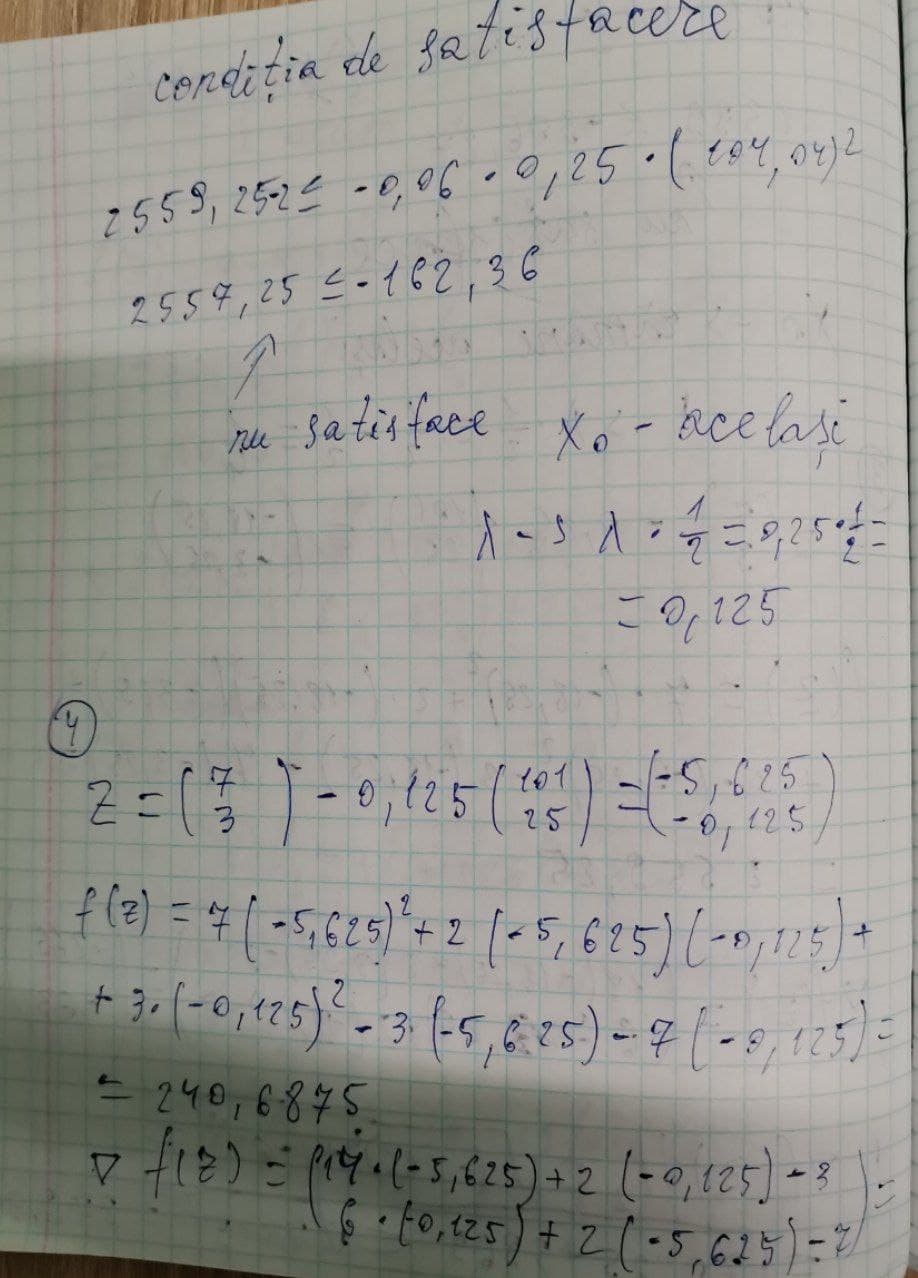 condiția de satisfacere
2559,25-2 ≤ -0,06 · 0,25 · (104,04)²
2557,25 ≤ -162,36
↑
nu satisface x₀ - același
λ → λ · 1/2 = 0,25 · 1/2 =
= 0,125
④
Z = (7 3) - 0,125 (101 25) = (-5,625 -0,125)
f(z) = 7(-5,625)² + 2(-5,625)(-0,125) +
+ 3·(-0,125)² - 3(-5,625) - 7(-0,125) =
= 240,6875
∇ f(z) = (14·(-5,625) + 2(-0,125) - 3
6·(-0,125) + 2(-5,625) - 7) =